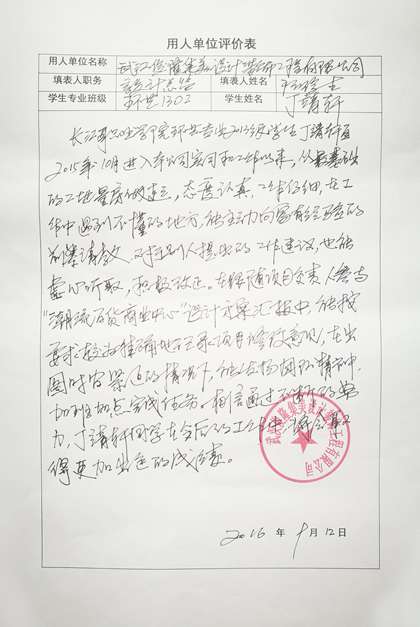 用人单位评价表
用人单位名称 武汉隆集美设计装饰工程有限公司
填表人职务 设计总监 填表人姓名
学生专业班级 环艺1302 学生姓名 丁靖轩
长江职业学院环艺专业2013级学生丁靖轩
2015年10月进入本公司实习和工作以来，从最基础
的工地量房做起，态度认真，工作仔细，在工
作中遇到不懂的地方，能主动向富有经验的
请教，对于别人提出的工作建议，也能
虚心听取，积极改正。在跟随项目负责人参与
"潮流百货商业中心"设计方案汇报中，能按
要求较为准确地记录项目修改意见，在出
图时间紧迫的情况下，能
加班加点完成任务。相信通过不断的努
力，丁靖轩同学在今后的工作中，将会取
得更加出色的成绩。
2016 年 9 月 12 日